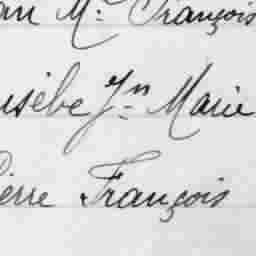 an M. François
usèbe Jn Marie
ierre François